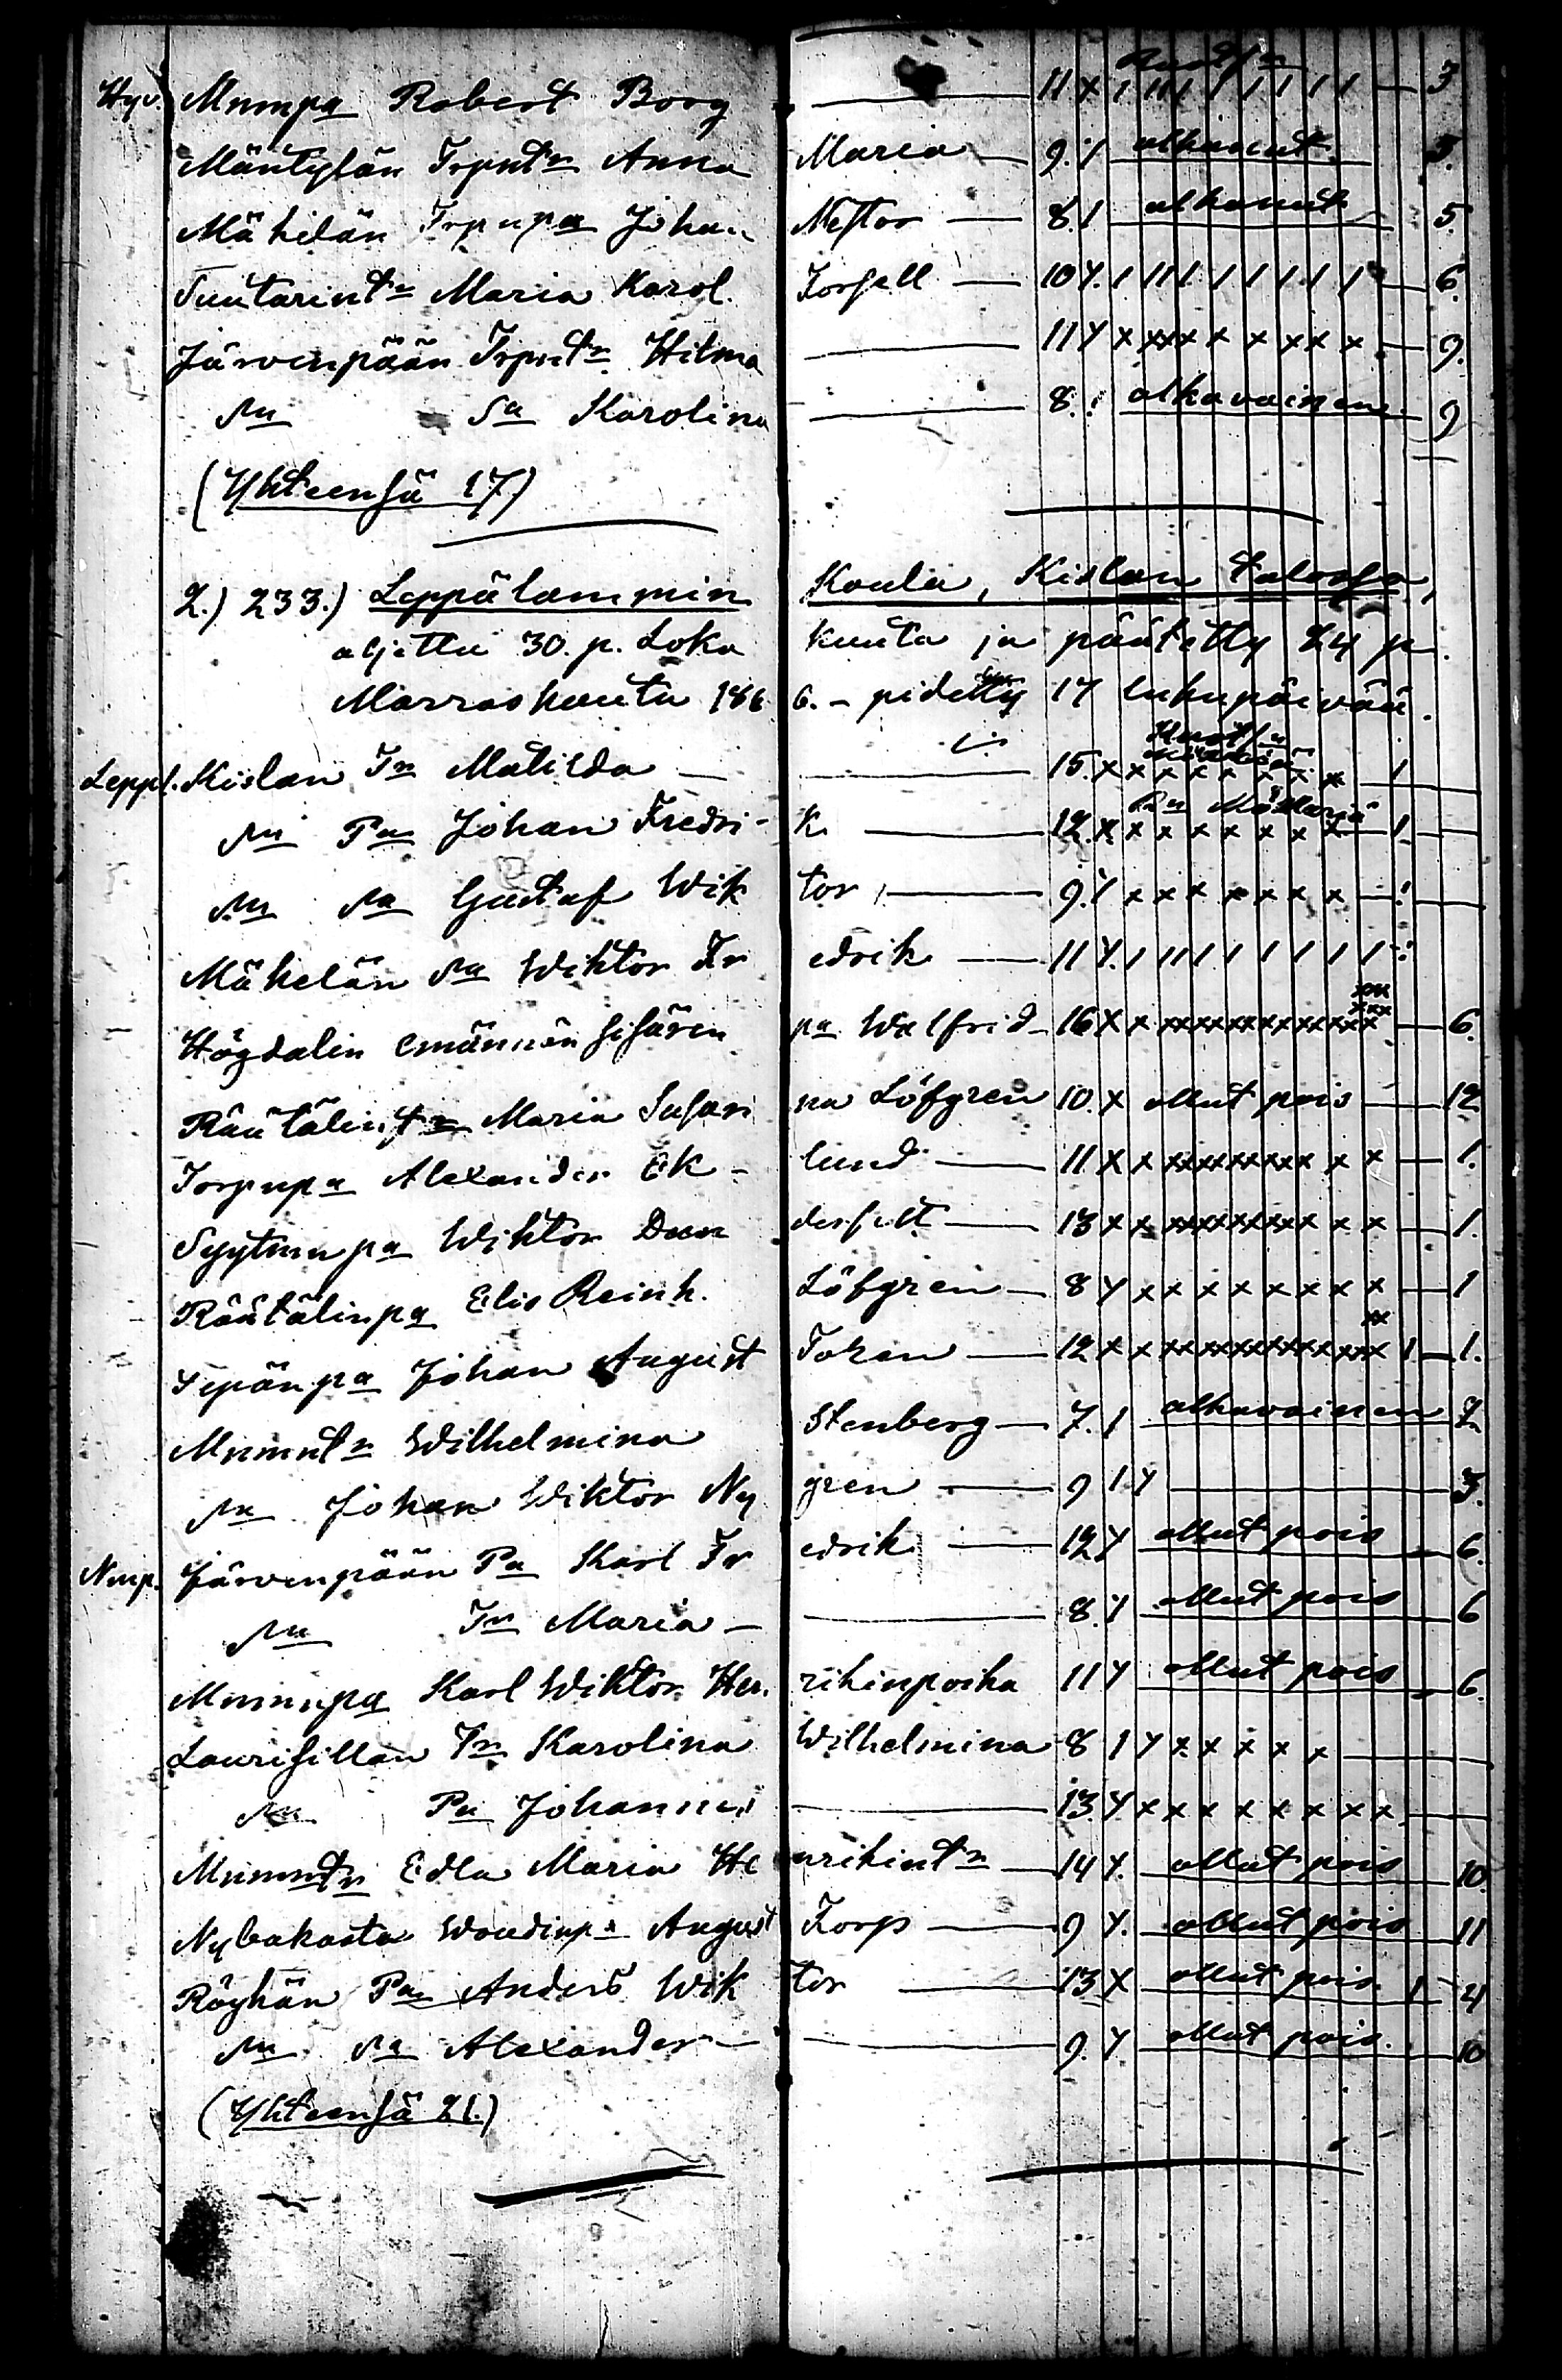 Hyv. Mnmpa Robert Borg — 11 x 1 1 1 1 1 1 1 1 1 — 3
Mäntylän Trpntr Anna Maria — 9. 1 alkanut. 5.
Mäkilän Trpnpa Johan Nestor — 8. 1 alkanut 5.
Suutarintr Maria Karol. Forsell — 10 y. 1 1 1 1 1 1 1 1 1 — 6.
Järvenpään Trpntr Hilma — 11 y x x x x x x x x x — 9.
sn sa Karolina — 8. 1 alkavainen 9
(Yhteensä 17)
2.) 233.) Leppälammin Koulu, Kislan talossa,
aljettu 30. p. Loka kuuta ja päätetty 24 p.
Marraskuuta 186 6. – pidetty 17 lukupäivää.
Leppl. Kislan Tr Matilda — 15. x x x x x x x x — 1
sn Pa Johan Fredri- k. — 12. x x x x x x x x — 1
sn sa Gustaf Wik tor — 9. y x x x x x x x — 1
Mäkelän sa Wiktor Fr edrik — 11 y. 1 1 1 1 1 1 1 1 1
Högdalin emännän sisaren pa Walfrid — 16 x x xxxxxxxxxxxxx — 6.
Räätälintr Maria Susan na Löfgren 10. x ollut pois — 12
Torpnpa Alexander Ek- lund — 11 x x xxxxxxxxx x x — 1.
Syytmnpa Wiktor Dan derfelt — 13 x x xxxxxxxxx x x — 1.
Räätälinpa Elis Reinh. Löfgren — 8 y x x x x x x x x — 1
Sepänpa Johan August — 12 x x xxxxxxxxxxxxx 1 — 1.
Mnmntr Wilhelmina Stenberg — 7. 1 alkavainen 7
sn Johan Wiktor Ny gren — 9 1 y — 3.
Nmp. Järvenpään Pa Karl Fr edrik — 12 y ollut pois 6.
sn Tr Maria — 8. y ollut pois 6
Mnmnpa Karl Wiktor Hen. rikinpoika 11 y ollut pois 6.
Laurisillan Tr Karolina Wilhelmina 8 1 y x x x x x —
sn Pa Johannes — 13. y x x x x x x x x
Mnmntr Edla Maria He nrikintr — 14 y. ollut pois 10.
Nybakasta Woudinpa August Forp — 9 y. ollut pois 11
Röyhän Pa Anders Wik tor — 13 x ollut pois 1 4
sn sa Alexander — 9. y ollut pois. 10
(Yhteensä 21.)